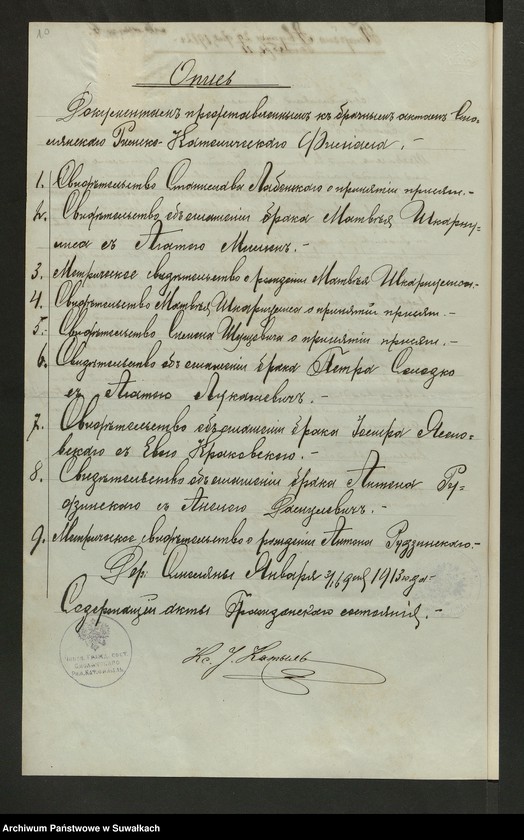 10
Опись
Документамъ представленнымъ къ брачнымъ актамъ Смо-
лянскаго Римско-Католическаго Филіала.-
1. Свидѣтельство Станислава о принятіи присяги.-
2. Свидѣтельство объ оглашеніи брака Матвѣя Шкарну-
лиса съ Агатою
3. Метрическое свидѣтельство о рожденіи Матвѣя
4. Свидѣтельство Матвѣя Шкарнулиса о принятіи присяги.-
5. Свидѣтельство Симона о принятіи присяги.-
6. Свидѣтельство объ оглашеніи брака Петра
съ Агатою Лукашевичъ.-
7. Свидѣтельство объ оглашеніи брака Іосифа Ясно-
вскаго съ Евою Краковскою.-
8. Свидѣтельство объ оглашеніи брака Антона Ру-
дзинскаго съ Анелею
9. Метрическое свидѣтельство о рожденіи Антона Рудзинскаго.-
Дер. Смоляны Января дня 1913 года
Содержащій акты Гражданскаго состоянія.-
Кс. J.
Archiwum Państwowe w Suwałkach